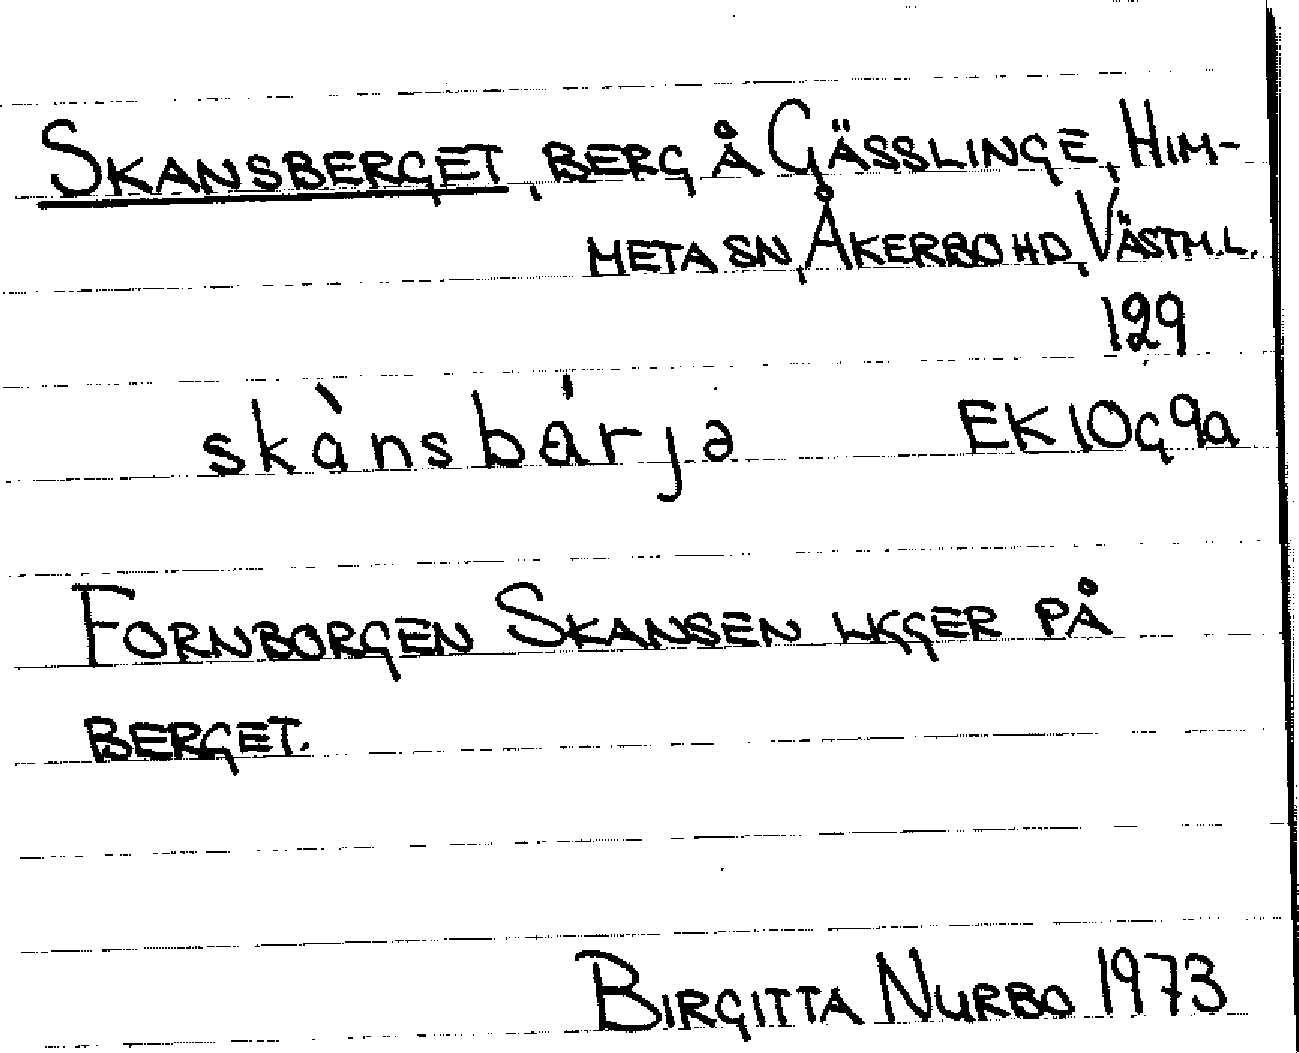 SKANSBERGET, BERG Å GÄSSLINGE, HIM-
META SN, ÅKERBO HD, VÄSTM.L.
129
skànsbárjə EK 10G 9a
FORNBORGEN SKANSEN LIGGER PÅ
BERGET.
BIRGITTA NURBO 1973